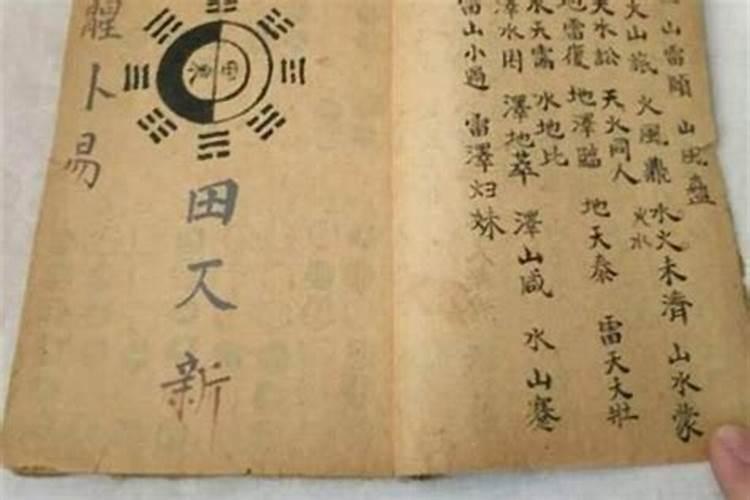 山雷頤
山風蠱
火山旅
火風鼎
水火未濟
火水
山水蒙
天水訟
天火同人
地雷復
地澤臨
地天泰
雷天大壯
水天需
水地比
澤水困
澤地萃
澤山咸
水山蹇
雷山小過
雷澤归妹
田仄新
卜易